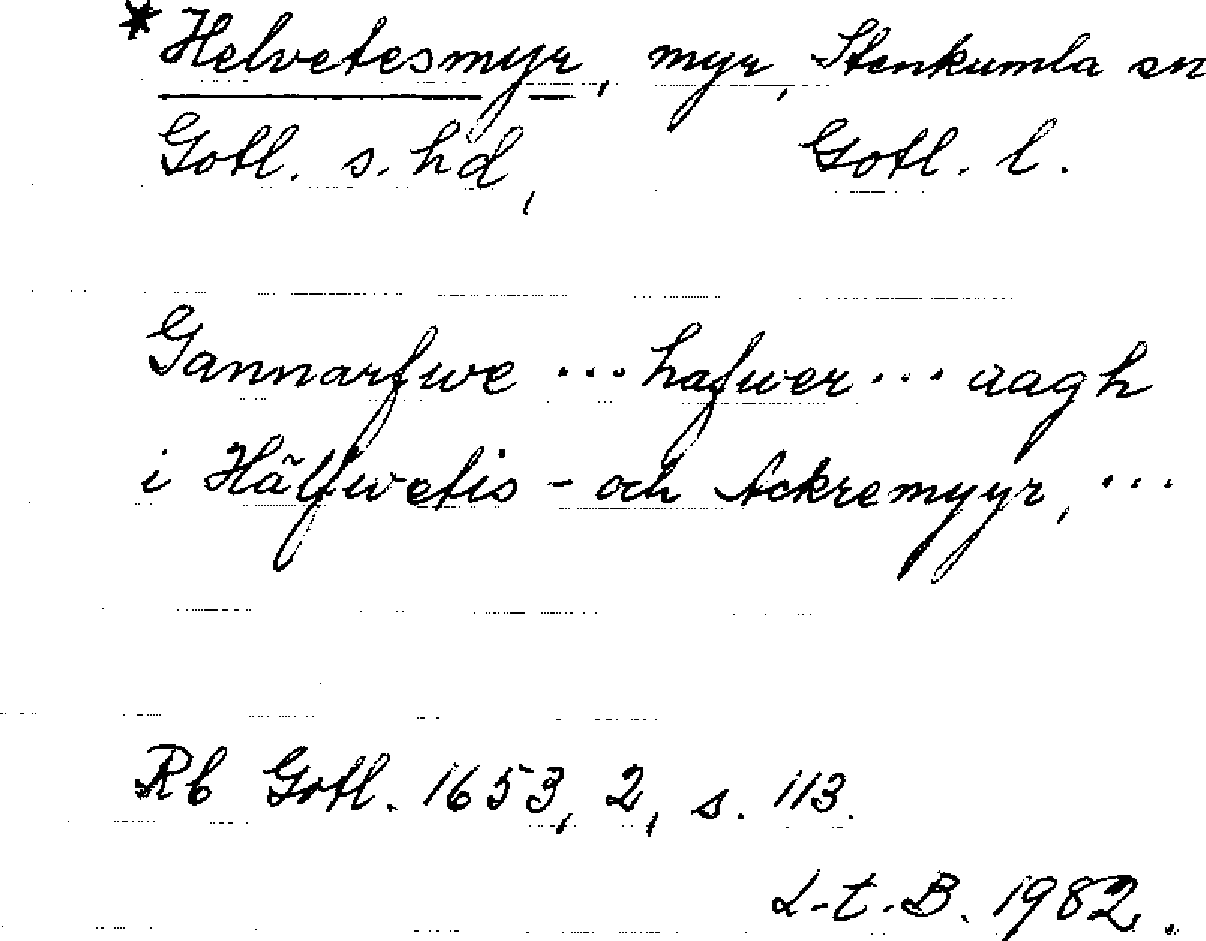 *Helvetesmyr, myr, Stenkumla sn
Gotl. s. hd, Gotl. l.
Gannarfwe ... hafwer ... aagh
i Hälfwetis- och Ackremyyr, ...
Rb Gotl. 1653, 2, s. 113.
L-t.B. 1982.